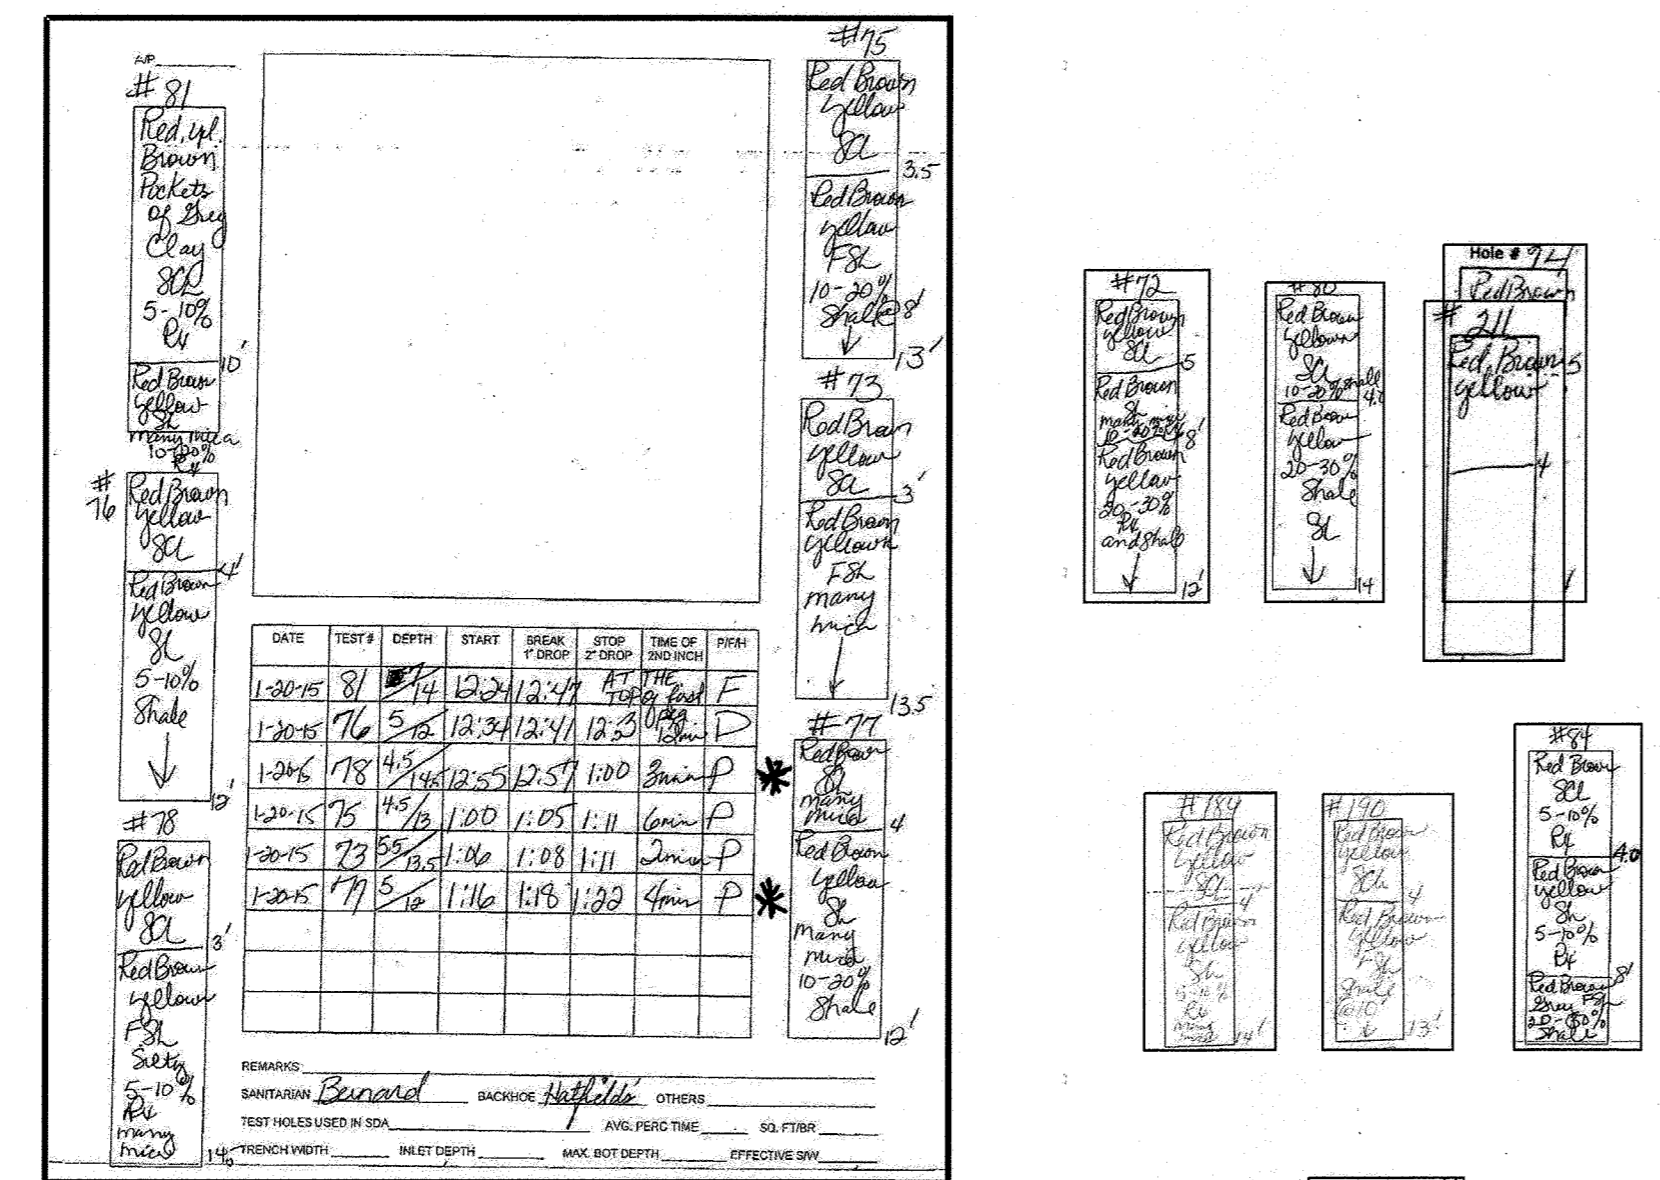 A/P
#81
Red, yel.
Brown
Pockets
of Grey
Clay
SCL
5-10%
10'
Red Brown
yellow
SL
many mica
10-20%
#
76
Red Brown
yellow
SCL
4'
Red Brown
yellow
SL
5-10%
Shale
12'
#78
Red Brown
yellow
SCL
3'
Red Brown
yellow
FSL
Silty
5-10%
many
mica
#75
Red Brown
yellow
SCL
3.5
Red Brown
yellow
FSL
10-20%
Shale @ 8'
13'
#73
Red Brown
yellow
SCL
3'
Red Brown
yellow
FSL
many
mica
13.5
#77
Red Brown
SL
many
mica
4
Red Brown
yellow
SL
Many
mica
10-20%
Shale
12'
DATE TEST # DEPTH START BREAK 1" DROP STOP 2" DROP TIME OF 2ND INCH P/F/H
1-20-15 81 7/14 12:24 12:47 AT THE TOP of fast F
1-20-15 76 5/12 12:34 12:41 P
1-20-15 78 4.5/14.5 12:55 12:57 1:00 3min P *
1-20-15 75 4.5/13 1:00 1:05 1:11 6min P
1-20-15 73 5.5/13.5 1:06 1:08 1:11 2min P
1-20-15 77 5/12 1:16 1:18 1:22 4min P *
REMARKS
SANITARIAN Bernard BACKHOE Hatfields OTHERS
TEST HOLES USED IN SDA AVG. PERC TIME SQ. FT/BR
TRENCH WIDTH INLET DEPTH MAX. BOT DEPTH EFFECTIVE S/W
#72
Red Brown
yellow
SCL
5
Red Brown
SL
many mica
8'
Red Brown
yellow
20-30%
and Shale
12'
#80
Red Brown
yellow
SCL
10-20% Shale
4.0
Red Brown
yellow
20-30%
Shale
SL
14
Hole # 94
Red Brown
# 211
Red, Brown 5
yellow
4
#189
Red Brown
yellow
SCL
4'
Red Brown
yellow
SL
5-10%
many
mica
14'
#190
Red Brown
yellow
SCL
4
Red Brown
yellow
FSL
Shale
@10'
13'
#84
Red Brown
SCL
5-10%
4.0
Red Brown
yellow
SL
5-10%
8'
Red Brown
Grey FSL
Shale